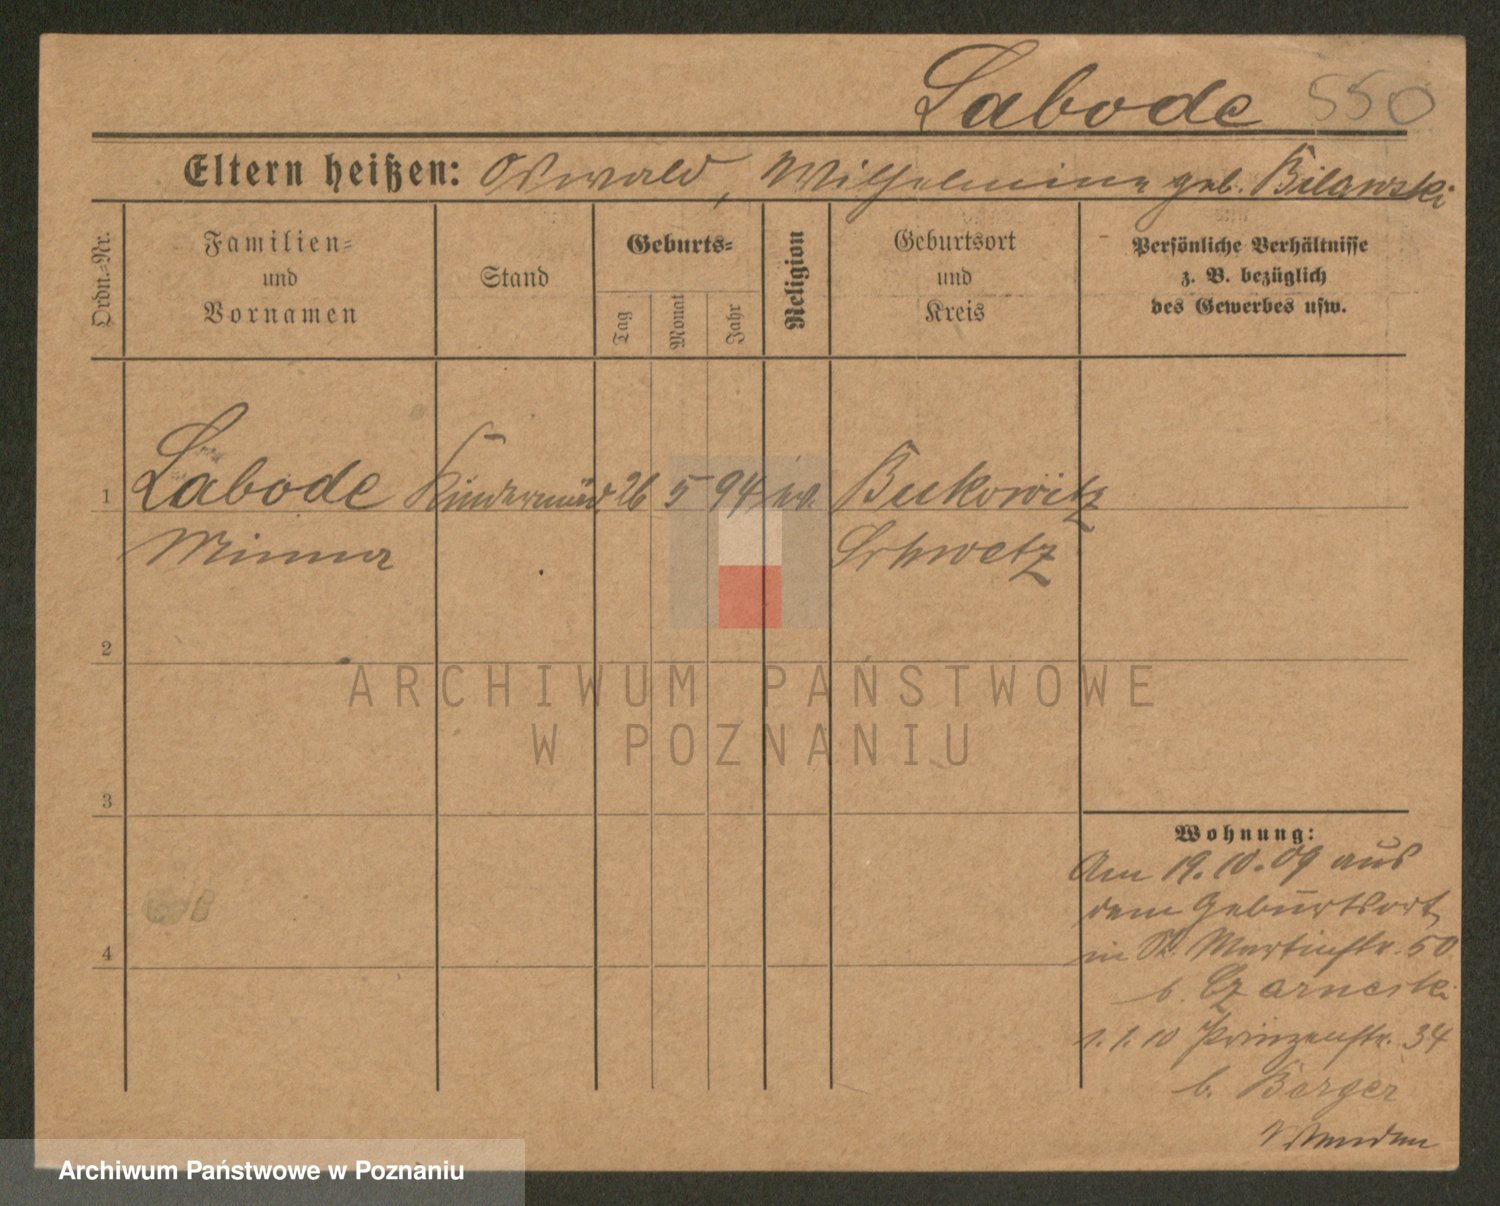 Labode 550
Eltern heißen: Oswald, Wilhelmine geb. Bilawski
Ordn.-Nr.
Familien- und Vornamen
Stand
Geburts-
Tag
Monat
Jahr
Religion
Geburtsort und Kreis
Persönliche Verhältnisse
z. B. bezüglich
des Gewerbes usw.
1 Labode Kindermäd 26 5 94 ev. Bukowitz
Minna Schwetz
2
3
4
ARCHIWUM PAŃSTWOWE
W POZNANIU
Wohnung:
Am 19.10.09 aus
dem Geburtsort
in St. Martinstr. 50
b. Czarnecki
1.1.10 Prinzenstr. 34
b. Barger
Archiwum Państwowe w Poznaniu